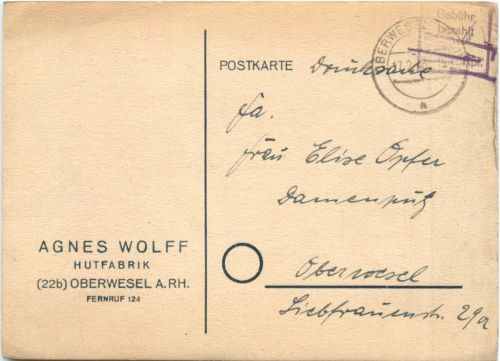 POSTKARTE Drucksache
Gebühr
bezahlt
Rpf.
OBERWESEL
a
Fa.
Frau Elise Opfer
Damenputz
Oberwesel
Liebfrauenstr. 29a
AGNES WOLFF
HUTFABRIK
(22b) OBERWESEL A.RH.
FERNRUF 124